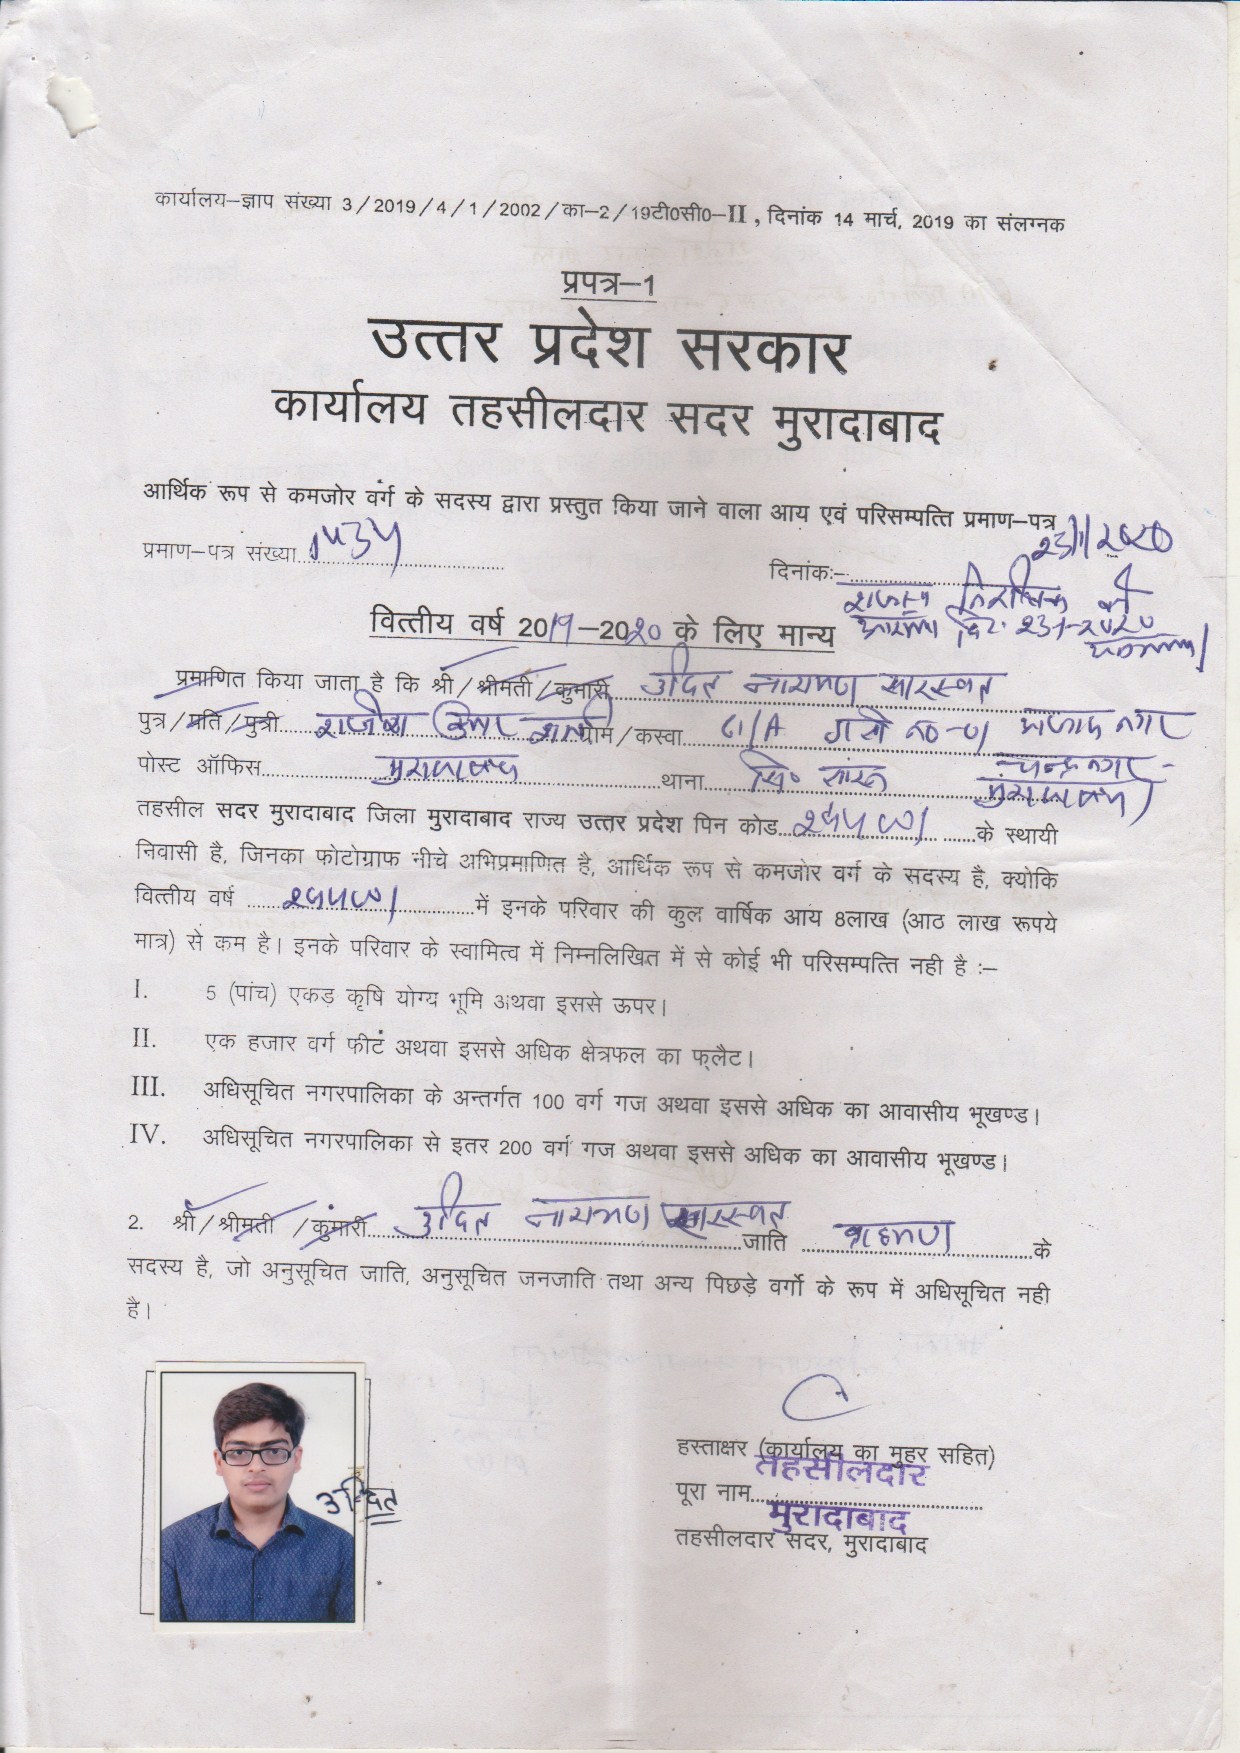 कार्यालय–ज्ञाप संख्या 3/2019/4/1/2002/का–2/19टी0सी0–II, दिनांक 14 मार्च, 2019 का संलग्नक
प्रपत्र–1
उत्तर प्रदेश सरकार
कार्यालय तहसीलदार सदर मुरादाबाद
आर्थिक रूप से कमजोर वर्ग के सदस्य द्वारा प्रस्तुत किया जाने वाला आय एवं परिसम्पत्ति प्रमाण–पत्र
प्रमाण–पत्र संख्या
दिनांकः– 23/1/2020
राजस्व निरीक्षक की
वित्तीय वर्ष 2019–2020 के लिए मान्य
प्रमाणित किया जाता है कि श्री/श्रीमती/कुमारी उदित नारायण सारस्वत
पुत्र/पति/पुत्री शर्मा ग्राम/कस्वा
पोस्ट ऑफिस मुरादाबाद थाना चन्द्रनगर
मुरादाबाद
तहसील सदर मुरादाबाद जिला मुरादाबाद राज्य उत्तर प्रदेश पिन कोड के स्थायी
निवासी है, जिनका फोटोग्राफ नीचे अभिप्रमाणित है, आर्थिक रूप से कमजोर वर्ग के सदस्य है, क्योकि
वित्तीय वर्ष में इनके परिवार की कुल वार्षिक आय 8लाख (आठ लाख रूपये
मात्र) से कम है। इनके परिवार के स्वामित्व में निम्नलिखित में से कोई भी परिसम्पत्ति नही है :–
I. 5 (पांच) एकड़ कृषि योग्य भूमि अथवा इससे ऊपर।
II. एक हजार वर्ग फीट अथवा इससे अधिक क्षेत्रफल का फ्लैट।
III. अधिसूचित नगरपालिका के अन्तर्गत 100 वर्ग गज अथवा इससे अधिक का आवासीय भूखण्ड।
IV. अधिसूचित नगरपालिका से इतर 200 वर्ग गज अथवा इससे अधिक का आवासीय भूखण्ड।
2. श्री/श्रीमती /कुंमारी उदित नारायण सारस्वत जाति ब्राहमण के
सदस्य है, जो अनुसूचित जाति, अनुसूचित जनजाति तथा अन्य पिछड़े वर्गो के रूप में अधिसूचित नही
है।
उदित
हस्ताक्षर (कार्यालय का मुहर सहित)
तहसीलदार
पूरा नाम
मुरादाबाद
तहसीलदार सदर, मुरादाबाद